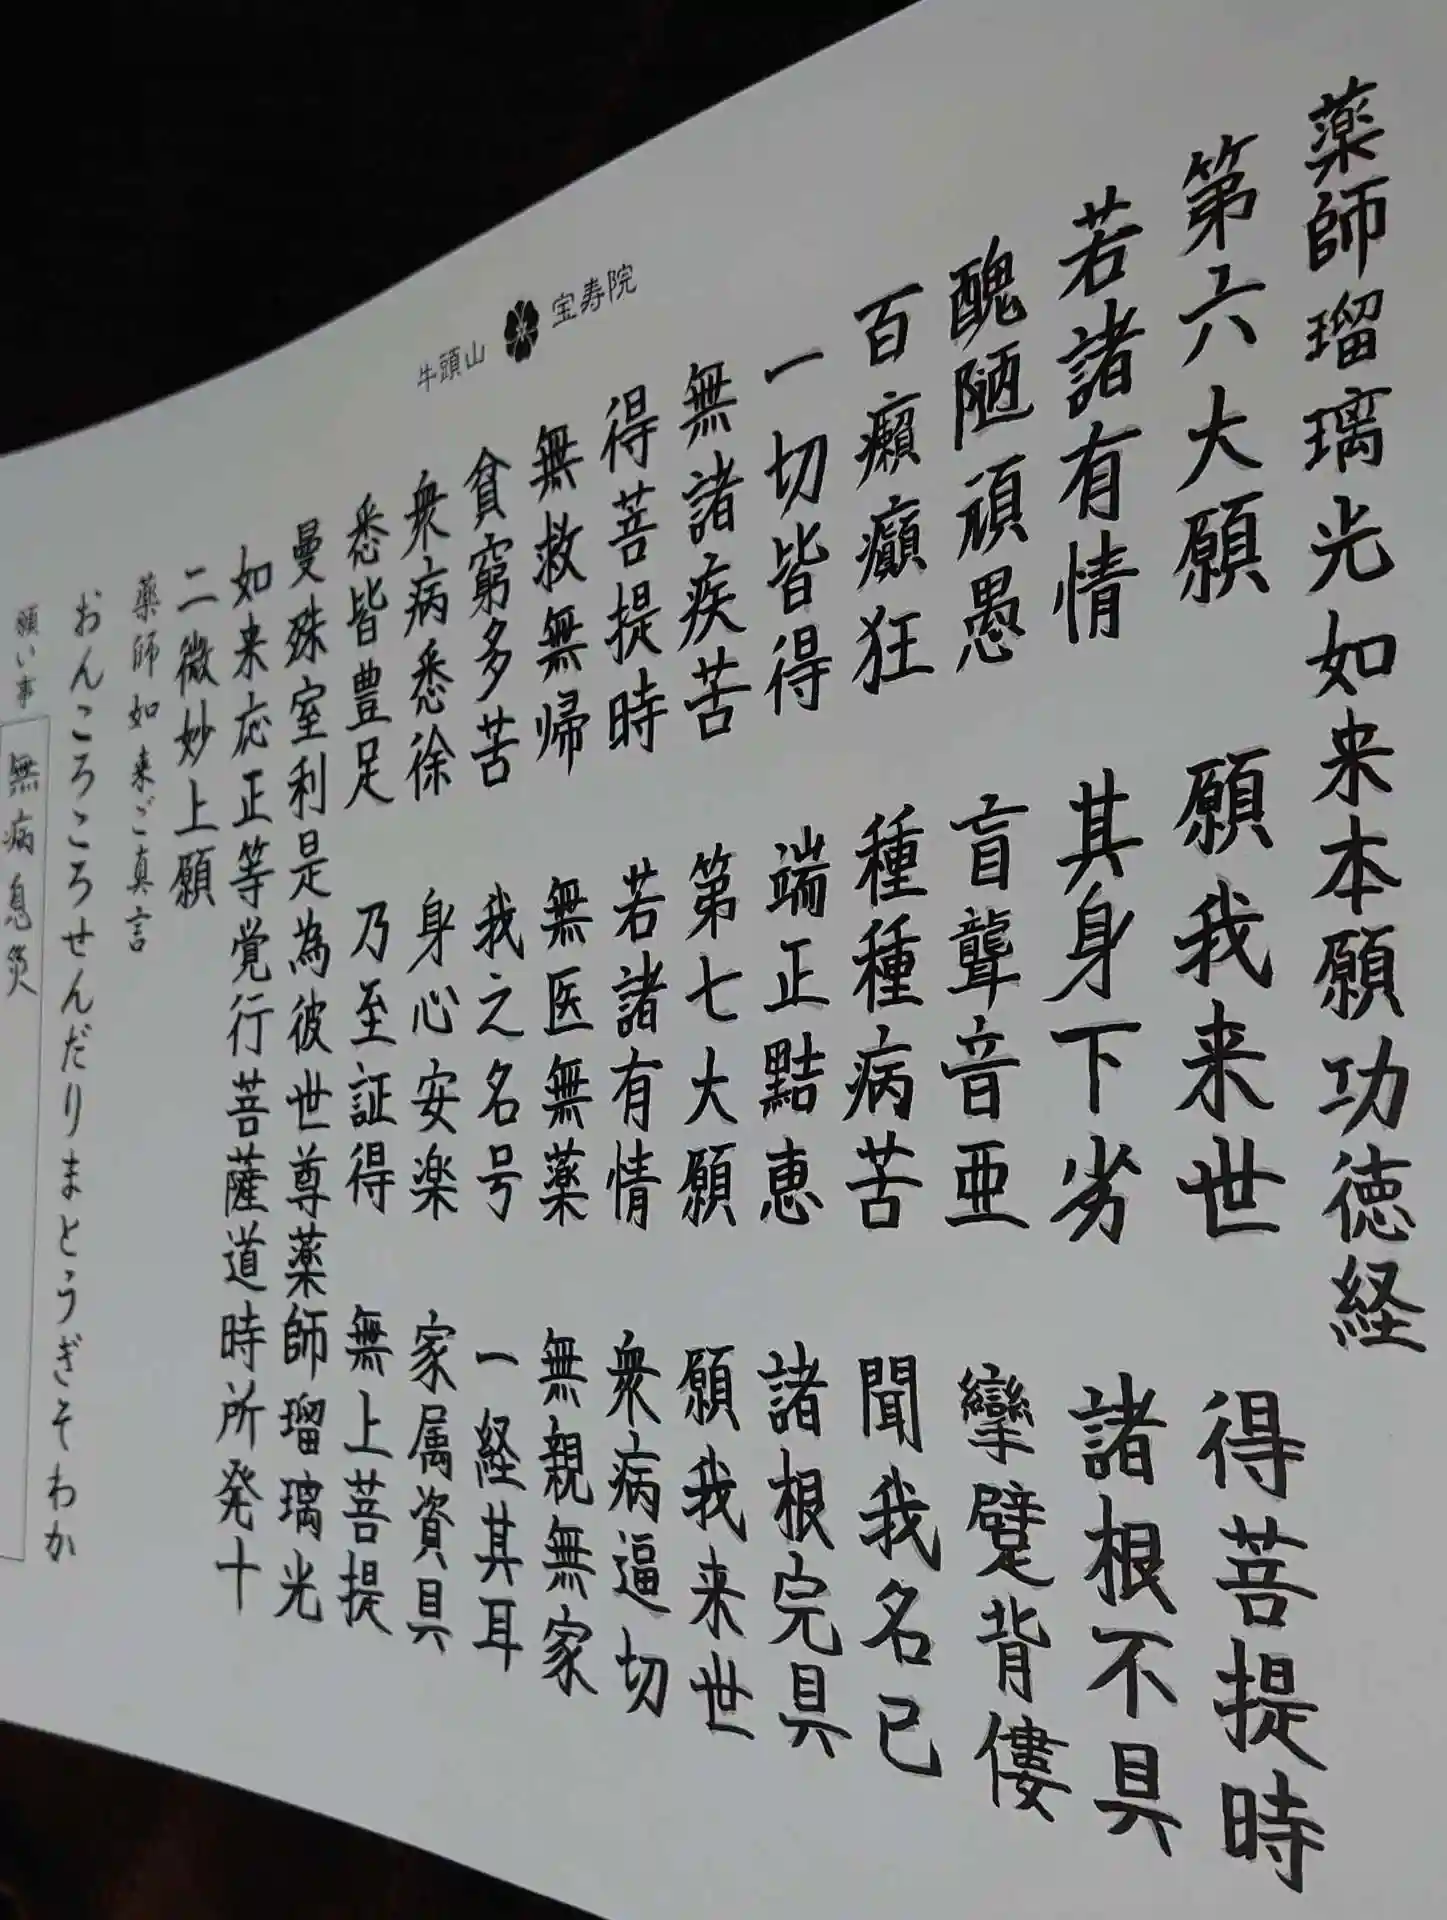 薬師瑠璃光如来本願功徳経
第六大願 願我来世 得菩提時
若諸有情 其身下劣 諸根不具
醜陋頑愚 盲聾音亜 攣躄背僂
百癩癲狂 種種病苦 聞我名已
一切皆得 端正黠恵 諸根完具
無諸疾苦 第七大願 願我来世
得菩提時 若諸有情 衆病逼切
無救無帰 無医無薬 無親無家
貧窮多苦 我之名号 一経其耳
衆病悉徐 身心安楽 家属資具
悉皆豊足 乃至証得 無上菩提
曼殊室利是為彼世尊薬師瑠璃光
如来応正等覚行菩薩道時所発十
二微妙上願
薬師如来ご真言
おんころころせんだりまとうぎそわか
願い事 無病息災
牛頭山 宝寿院